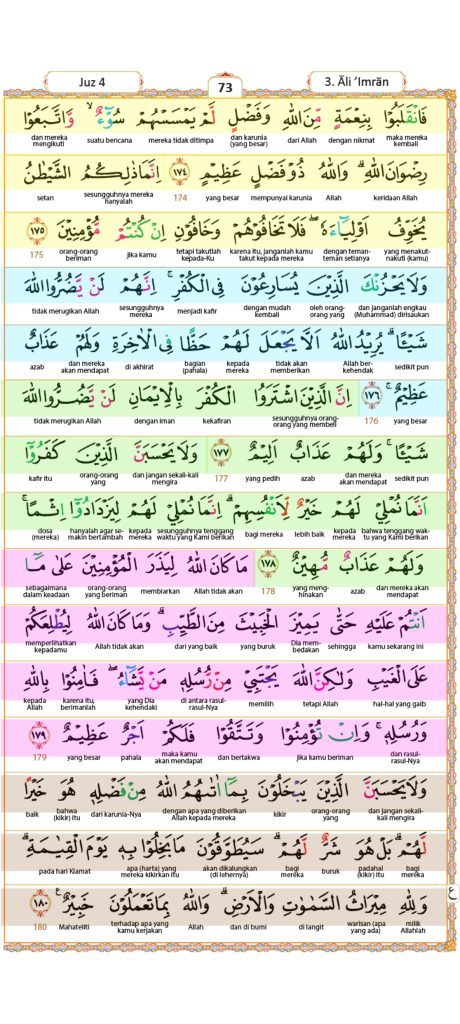 Juz 4
73
3. Āli ‘Imrān
فَانْقَلَبُوْا بِنِعْمَةٍ مِّنَ اللّٰهِ وَفَضْلٍ لَّمْ يَمْسَسْهُمْ سُوْۤءٌۙ وَّاتَّبَعُوْا
maka mereka kembali dengan nikmat dari Allah dan karunia (yang besar) mereka tidak ditimpa suatu bencana dan mereka mengikuti
رِضْوَانَ اللّٰهِ ۗ وَاللّٰهُ ذُوْ فَضْلٍ عَظِيْمٍ ١٧٤ اِنَّمَا ذٰلِكُمُ الشَّيْطٰنُ
keridaan Allah Allah mempunyai karunia yang besar 174 sesungguhnya mereka hanyalah setan
يُخَوِّفُ اَوْلِيَاۤءَهٗۖ فَلَا تَخَافُوْهُمْ وَخَافُوْنِ اِنْ كُنْتُمْ مُّؤْمِنِيْنَ ١٧٥
yang menakut-nakuti (kamu) dengan teman-teman setianya karena itu, janganlah kamu takut kepada mereka tetapi takutlah kepada-Ku jika kamu orang-orang beriman 175
وَلَا يَحْزُنْكَ الَّذِيْنَ يُسَارِعُوْنَ فِى الْكُفْرِۚ اِنَّهُمْ لَنْ يَّضُرُّوا اللّٰهَ
dan janganlah engkau (Muhammad) dirisaukan oleh orang-orang yang dengan mudah kembali menjadi kafir sesungguhnya mereka tidak merugikan Allah
شَيْـًٔا ۗ يُرِيْدُ اللّٰهُ اَلَّا يَجْعَلَ لَهُمْ حَظًّا فِى الْاٰخِرَةِ وَلَهُمْ عَذَابٌ
sedikit pun Allah ber-kehendak tidak akan memberikan kepada mereka bagian (pahala) di akhirat dan mereka akan mendapat azab
عَظِيْمٌۚ ١٧٦ اِنَّ الَّذِيْنَ اشْتَرَوُا الْكُفْرَ بِالْاِيْمَانِ لَنْ يَّضُرُّوا اللّٰهَ
yang besar 176 sesungguhnya orang-orang yang membeli kekafiran dengan iman tidak merugikan Allah
شَيْـًٔاۚ وَلَهُمْ عَذَابٌ اَلِيْمٌ ١٧٧ وَلَا يَحْسَبَنَّ الَّذِيْنَ كَفَرُوْٓا
sedikit pun dan mereka akan mendapat azab yang pedih 177 dan jangan sekali-kali mengira orang-orang yang kafir itu
اَنَّمَا نُمْلِيْ لَهُمْ خَيْرٌ لِّاَنْفُسِهِمْ ۗ اِنَّمَا نُمْلِيْ لَهُمْ لِيَزْدَادُوْٓا اِثْمًاۚ
bahwa tenggang wak-tu yang Kami berikan kepada mereka lebih baik bagi mereka sesungguhnya tenggang waktu yang Kami berikan kepada mereka hanyalah agar se-makin bertambah dosa (mereka)
وَلَهُمْ عَذَابٌ مُّهِيْنٌ ١٧٨ مَا كَانَ اللّٰهُ لِيَذَرَ الْمُؤْمِنِيْنَ عَلٰى مَآ
dan mereka akan mendapat azab yang meng-hinakan 178 Allah tidak akan membiarkan orang-orang yang beriman sebagaimana dalam keadaan
اَنْتُمْ عَلَيْهِ حَتّٰى يَمِيْزَ الْخَبِيْثَ مِنَ الطَّيِّبِ ۗ وَمَا كَانَ اللّٰهُ لِيُطْلِعَكُمْ
kamu sekarang ini sehingga Dia mem-bedakan yang buruk dari yang baik Allah tidak akan memperlihatkan kepadamu
عَلَى الْغَيْبِ وَلٰكِنَّ اللّٰهَ يَجْتَبِيْ مِنْ رُّسُلِهٖ مَنْ يَّشَاۤءُ ۖ فَاٰمِنُوْا بِاللّٰهِ
hal-hal yang gaib tetapi Allah memilih di antara rasul-rasul-Nya yang Dia kehendaki karena itu, berimanlah kepada Allah
وَرُسُلِهٖ ۚ وَاِنْ تُؤْمِنُوْا وَتَتَّقُوْا فَلَكُمْ اَجْرٌ عَظِيْمٌ ١٧٩
dan rasul-rasul-Nya jika kamu beriman dan bertakwa maka kamu akan mendapat pahala yang besar 179
وَلَا يَحْسَبَنَّ الَّذِيْنَ يَبْخَلُوْنَ بِمَآ اٰتٰىهُمُ اللّٰهُ مِنْ فَضْلِهٖ هُوَ خَيْرًا
dan jangan sekali-kali mengira orang-orang yang kikir dengan apa yang diberikan Allah kepada mereka dari karunia-Nya bahwa (kikir) itu baik
لَّهُمْ ۗ بَلْ هُوَ شَرٌّ لَّهُمْ ۗ سَيُطَوَّقُوْنَ مَا بَخِلُوْا بِهٖ يَوْمَ الْقِيٰمَةِ ۗ
bagi mereka padahal (kikir) itu buruk bagi mereka akan dikalungkan (di lehernya) apa (harta) yang mereka kikirkan itu pada hari Kiamat
وَلِلّٰهِ مِيْرَاثُ السَّمٰوٰتِ وَالْاَرْضِۗ وَاللّٰهُ بِمَا تَعْمَلُوْنَ خَبِيْرٌ ࣖ ١٨٠
milik Allahlah warisan (apa yang ada) di langit dan di bumi Allah terhadap apa yang kamu kerjakan Mahateliti 180
ع